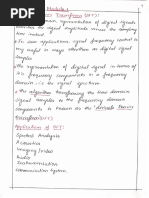 Module-1
Transform (DFT):
representation of digital signals
the signal amplitude versus the sampling
time instant
In some applications, signal frequency content is
very useful in ways otherwise as digital signal
samples.
The representation of digital signal in terms of
its frequency components in a frequency
domain
The algorithm transforming the time domain
signal samples to the frequency domain
components is known as the discrete Fourier
transform (DFT).
Applications of DFT:
Spectral Analysis
Acoustics
Imaging/Video
Audio
Instrumentation
Communication System.